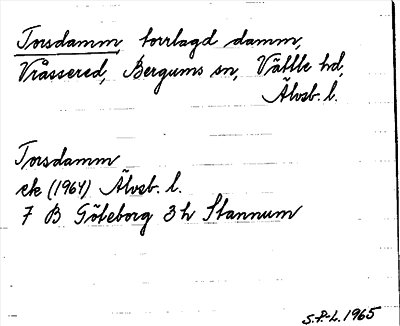 Torsdamm, torrlagd damm,
Vråssered, Bergums sn, Vättle hd,
Älvsb. l.
Torsdamm
ek (1964) Älvsb. l.
7 B Göteborg 3 h Stannum
S.P-L. 1965